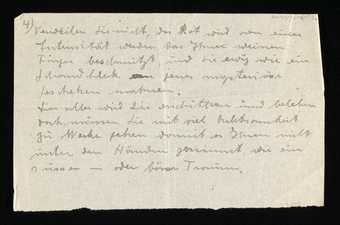 4) Verweilen Sie nicht, der Kot wird von einer
Intensität werden, das Ihnen meinen
Finger beschmutzt, und Sie ewig wie ein
Schandfleck an jenes mysteriöse
Geschehen mahnen.
Das alles wird Sie erschüttern und beleben
doch müssen Sie mit viel Behutsamkeit
zu Werke gehen damit es Ihnen nicht
unter den Händen zerrinnt wie ein
süsser — oder böser Traum.